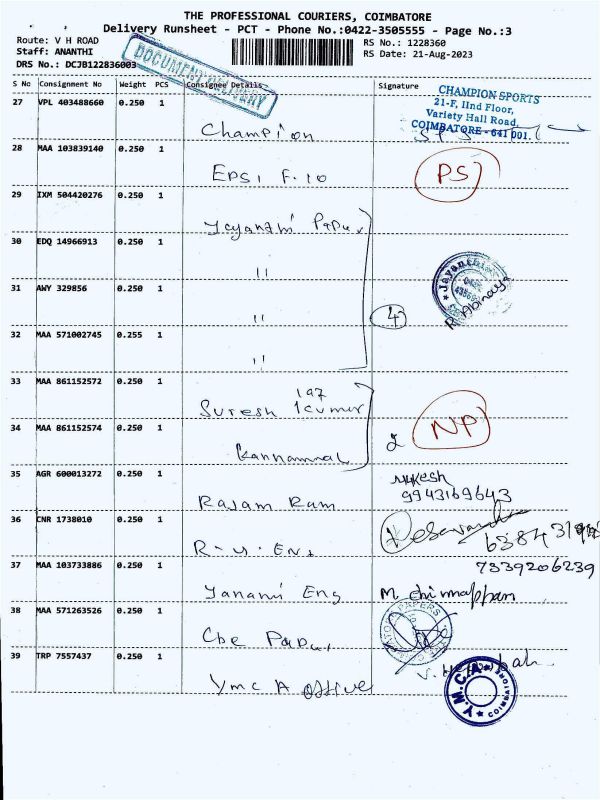 THE PROFESSIONAL COURIERS, COIMBATORE
Delivery Runsheet - PCT - Phone No.:0422-3505555 - Page No.:3
Route: V H ROAD
RS No.: 1228360
Staff: ANANTHI
RS Date: 21-Aug-2023
DRS No.: DCJB122836003
DOCUMENT DELIVERY
S No Consignment No Weight PCS Consignee Details Signature
27 VPL 403488660 0.250 1 Champion
CHAMPION SPORTS
21-F, IInd Floor,
Variety Hall Road,
COIMBATORE - 641 001.
28 MAA 103839140 0.250 1 EPSI F-10 PS
29 IXM 504420276 0.250 1 Jayanthi
30 EDQ 14966913 0.250 1 "
31 AWY 329856 0.250 1 " 4
Jayanthi
R. Abinaya
32 MAA 571002745 0.255 1 "
33 MAA 861152572 0.250 1 Suresh Kumar 197
34 MAA 861152574 0.250 1 Kannammal 2 NP
35 AGR 600013272 0.250 1 Rajam Ram
Mukesh
9943169643
36 CNR 1738010 0.250 1 Kesavan
37 MAA 103733886 0.250 1 Yanami Eng
7339206239
M. chinnappan
38 MAA 571263526 0.250 1 Cbe
PAPERS
39 TRP 7557437 0.250 1 YMCA office
Y.M.C.A
COIMBATORE